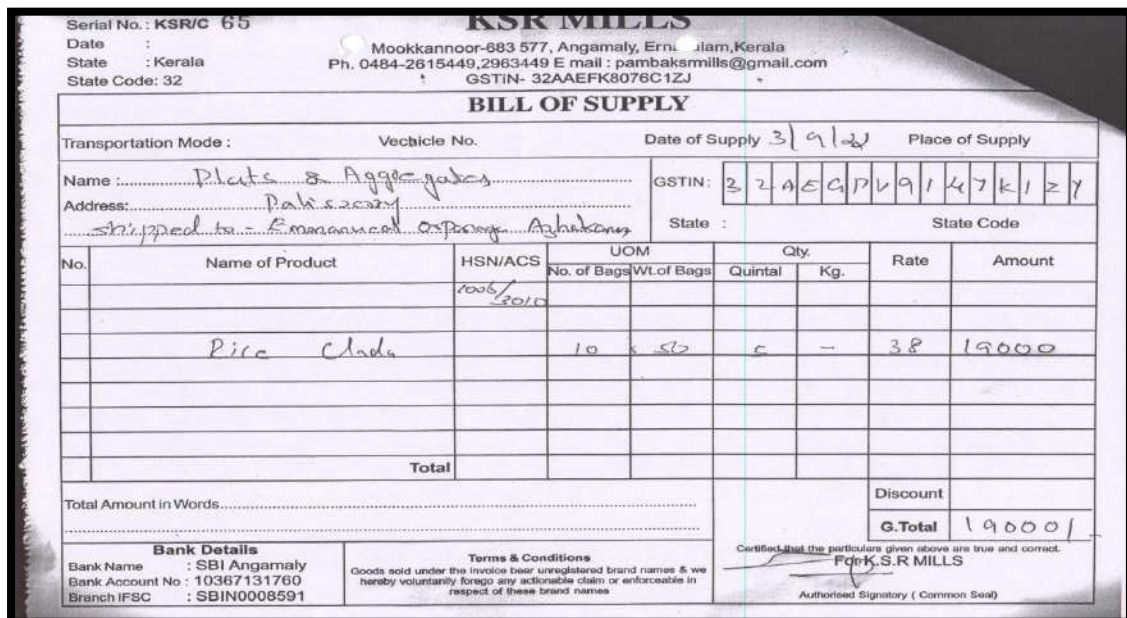 Serial No. : KSR/C 65
KSR MILLS
Date :
Mookkannoor-683 577, Angamaly, Ern ulam,Kerala
State : Kerala
Ph. 0484-2615449,2963449 E mail : pambaksrmills@gmail.com
State Code: 32
GSTiN- 32AAEFK8076C1ZJ
BILL OF SUPPLY
Transportation Mode : Vechicle No. Date of Supply 3/9/22 Place of Supply
Name : Plats & Aggregates
GSTIN: 32AEGPV9147K1ZY
Address:
shipped to - State : State Code
No. Name of Product HSN/ACS UOM Qty. Rate Amount
No. of Bags Wt.of Bags Quintal Kg.
1006/3010
10 x 50 5 - 38 19000
Total
Total Amount in Words
Discount
G.Total 19000/-
Bank Details
Bank Name : SBI Angamaly
Bank Account No : 10367131760
Branch IFSC : SBIN0008591
Terms & Conditions
Goods sold under the invoice bear unregistered brand names & we
hereby voluntarily forego any actionable claim or enforceable in
respect of these brand names
Certified that the particulars given above are true and correct.
For K.S.R MILLS
Authorised Signatory ( Common Seal)